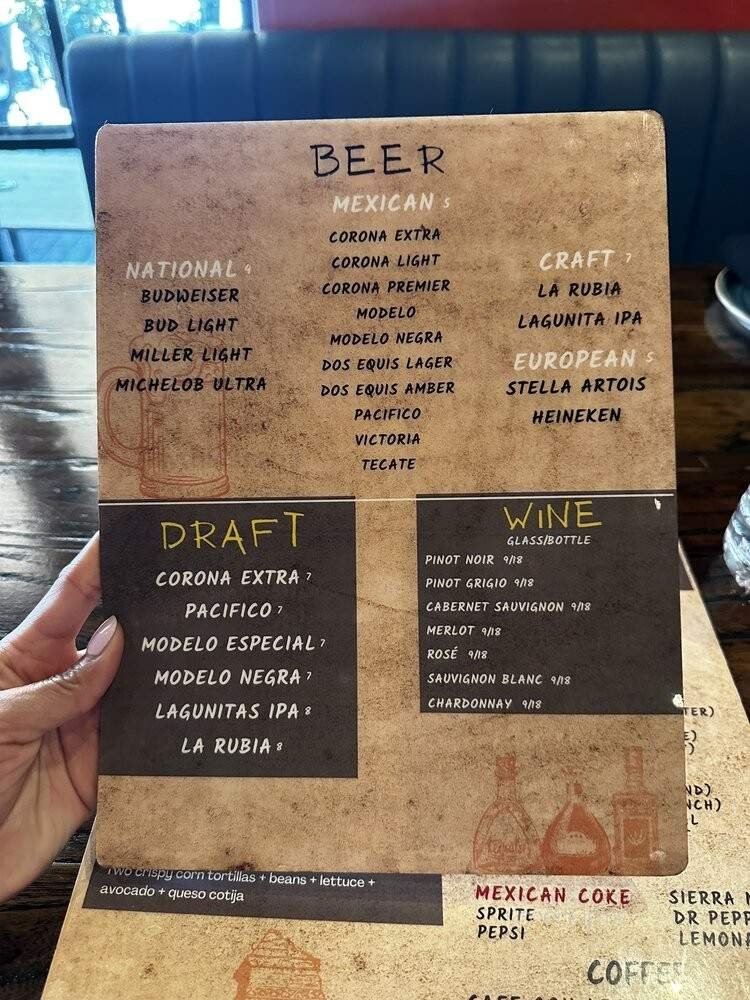 BEER
MEXICAN 5
CORONA EXTRA
CORONA LIGHT
CORONA PREMIER
MODELO
MODELO NEGRA
DOS EQUIS LAGER
DOS EQUIS AMBER
PACIFICO
VICTORIA
TECATE
NATIONAL 4
BUDWEISER
BUD LIGHT
MILLER LIGHT
MICHELOB ULTRA
CRAFT 7
LA RUBIA
LAGUNITA IPA
EUROPEAN 5
STELLA ARTOIS
HEINEKEN
DRAFT
CORONA EXTRA 7
PACIFICO 7
MODELO ESPECIAL 7
MODELO NEGRA 7
LAGUNITAS IPA 8
LA RUBIA 8
WINE
GLASS/BOTTLE
PINOT NOIR 9/18
PINOT GRIGIO 9/18
CABERNET SAUVIGNON 9/18
MERLOT 9/18
ROSÉ 9/18
SAUVIGNON BLANC 9/18
CHARDONNAY 9/18
Two crispy corn tortillas + beans + lettuce +
avocado + queso cotija
MEXICAN COKE
SPRITE
PEPSI
SIERRA
DR PEPP
LEMONA
COFFEE